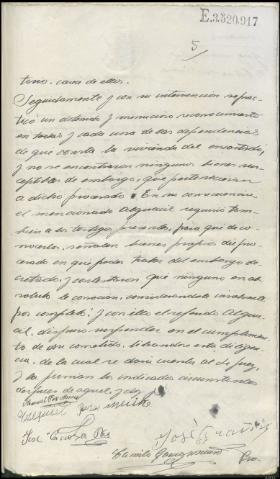 E.3320.917
5
terio. caria de ellos.
Seguidamente y con su intervención se practicó
un detenido y minucioso reconocimiento
en todas y cada una de las dependencias
de que consta la vivienda del encartado,
y no se encontraron ningunos bienes susceptibles
de embargo, que pertenecieran
a dicho procesado. En su consecuencia
el mencionado Alguacil requirió también
a los testigos presentes, para que de conocerlos,
señalen bienes propios del procesado
en que pueda trabar el embargo decretado,
y contestaron que ninguno en absoluto
le conocían, considerándole insolvente
por completo; y con ello el referido Alguacil,
dispuso suspender en el cumplimiento
de su cometido, librándose esta diligencia,
de la cual se dará cuenta al Juez,
y la firman los indicados concurrentes
después de aquel, y doy fe
José